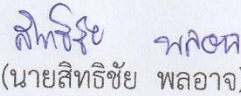 สิทธิชัย พลอาจ
(นายสิทธิชัย พลอาจ)